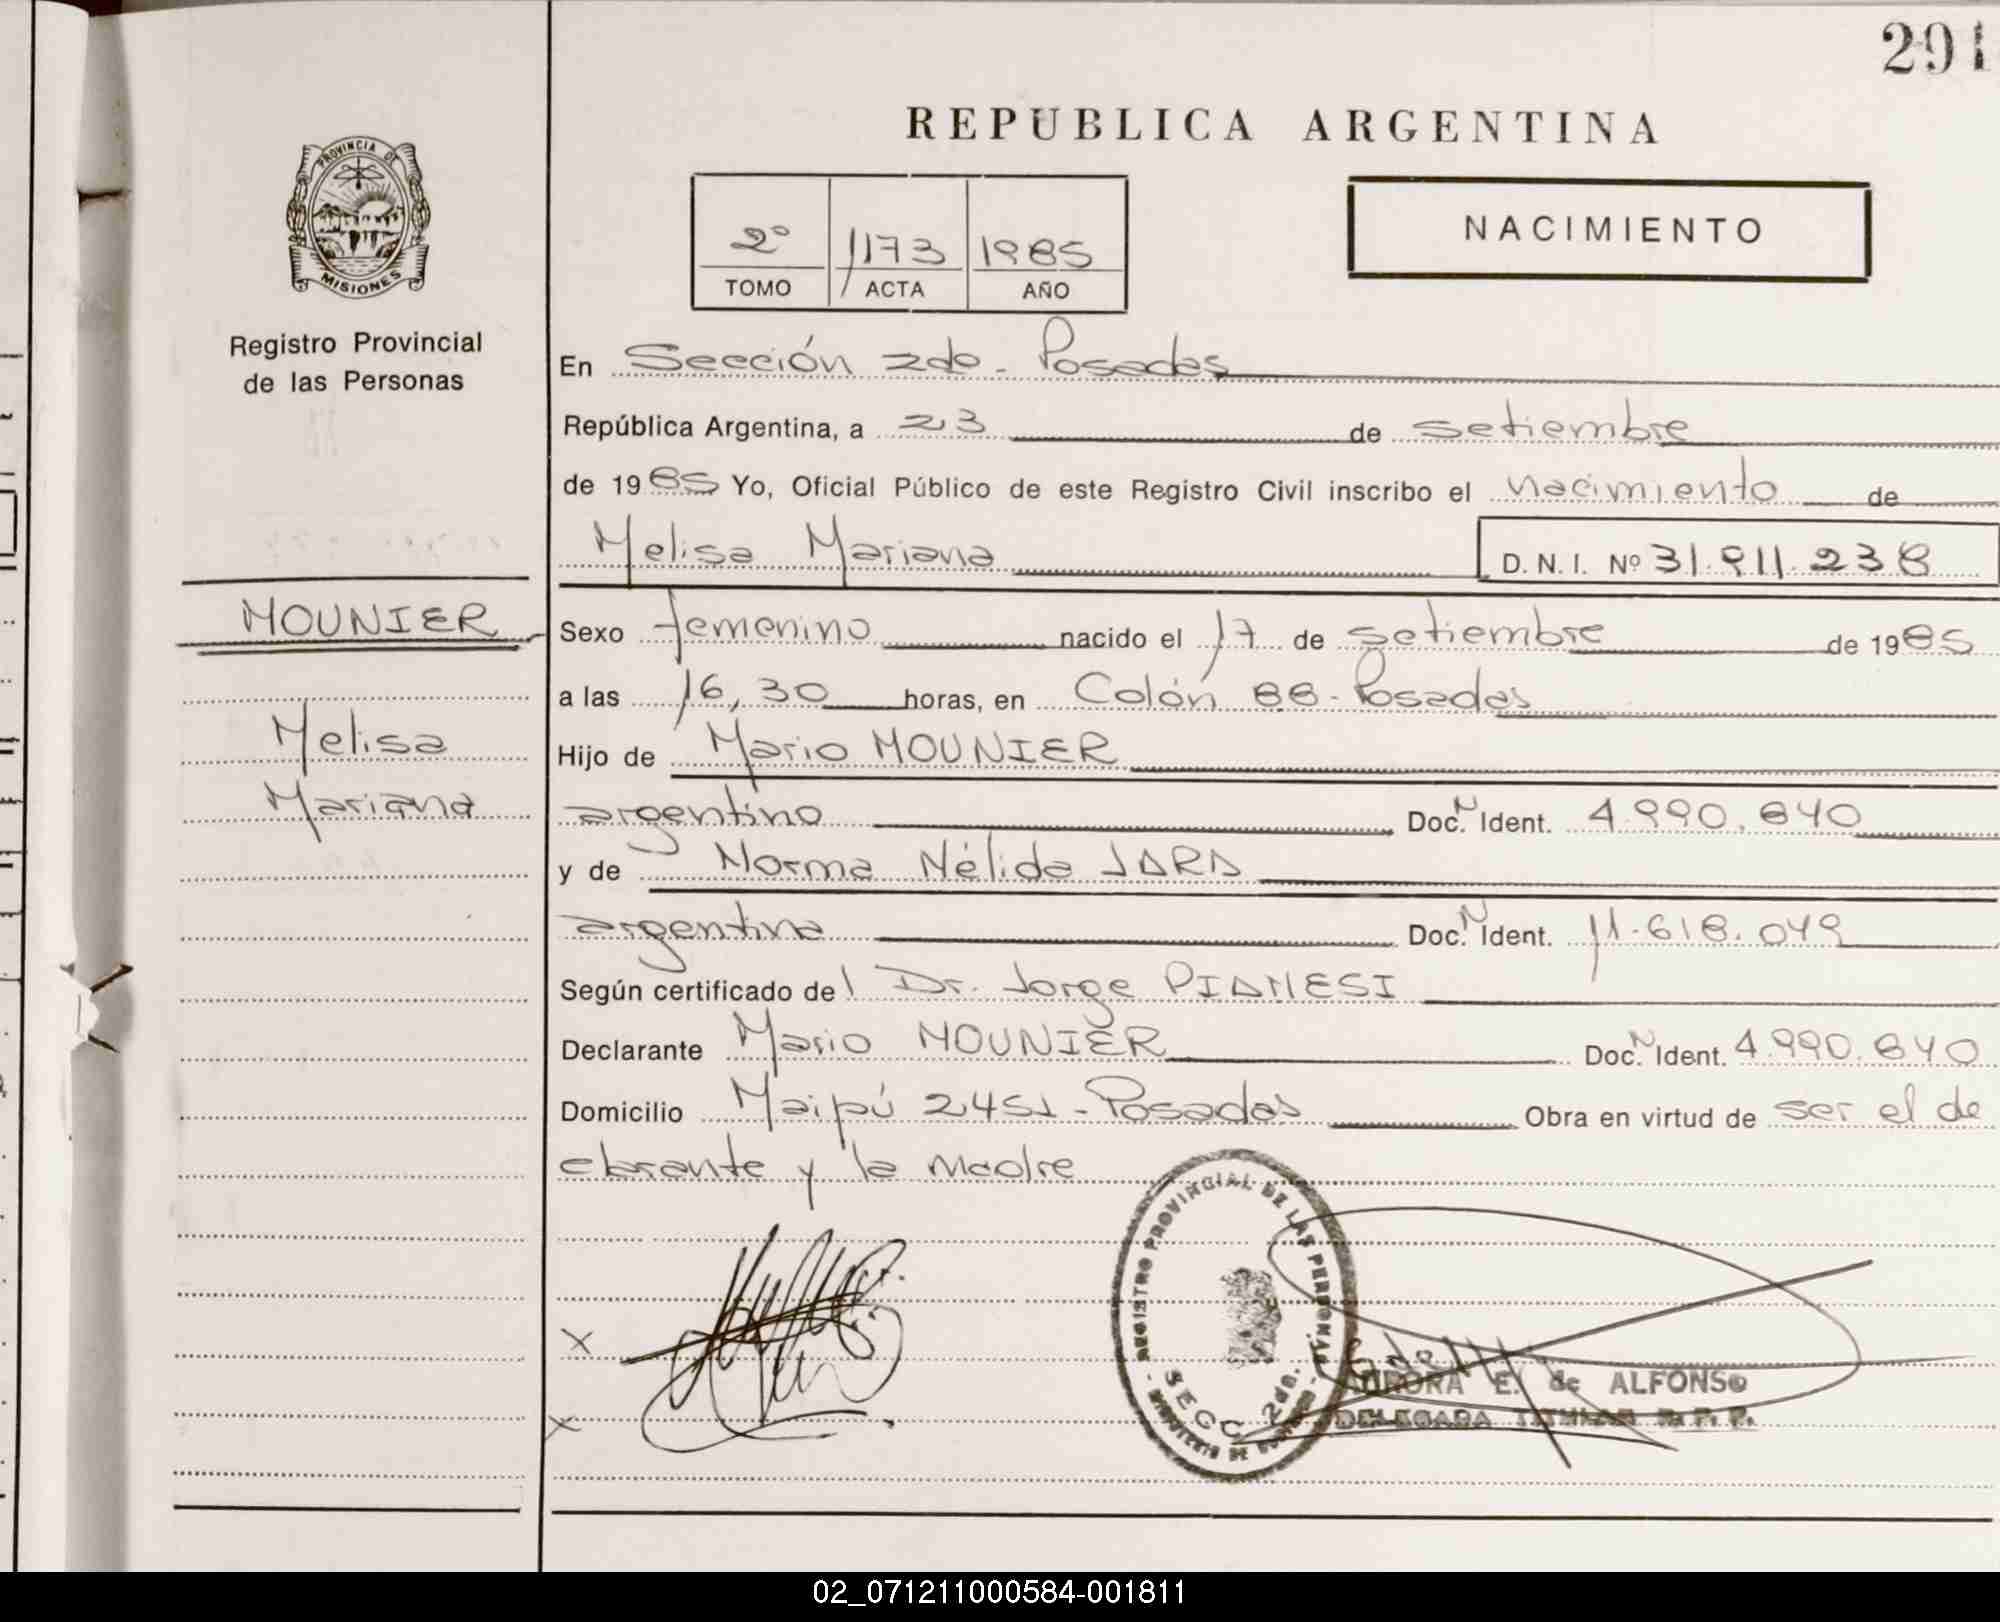 291
REPUBLICA ARGENTINA
PROVINCIA DE
MISIONES
Registro Provincial
de las Personas
2° 1173 1985
TOMO ACTA AÑO
NACIMIENTO
En Sección 2da - Posadas
República Argentina, a 23 de setiembre
de 1985 Yo, Oficial Público de este Registro Civil inscribo el nacimiento de
Melisa Mariana D. N. I. Nº 31.911.238
MOUNIER
Melisa
Mariana
Sexo femenino nacido el 17 de setiembre de 1985
a las 16,30 horas, en Colón 88 - Posadas
Hijo de Mario MOUNIER
argentino Doc. N Ident. 4.990.840
y de Norma Nélida JARA
argentina Doc. N Ident. 11.618.049
Según certificado del Dr. Jorge PIANESI
Declarante Mario MOUNIER Doc. N Ident. 4.990.840
Domicilio Maipú 2451 - Posadas Obra en virtud de ser el de
clarante y la madre
REGISTRO PROVINCIAL DE LAS PERSONAS
SECC 2da.
X
X
AURORA E. de ALFONSO
DELEGADA TITULAR R. P. P.
02_071211000584-001811